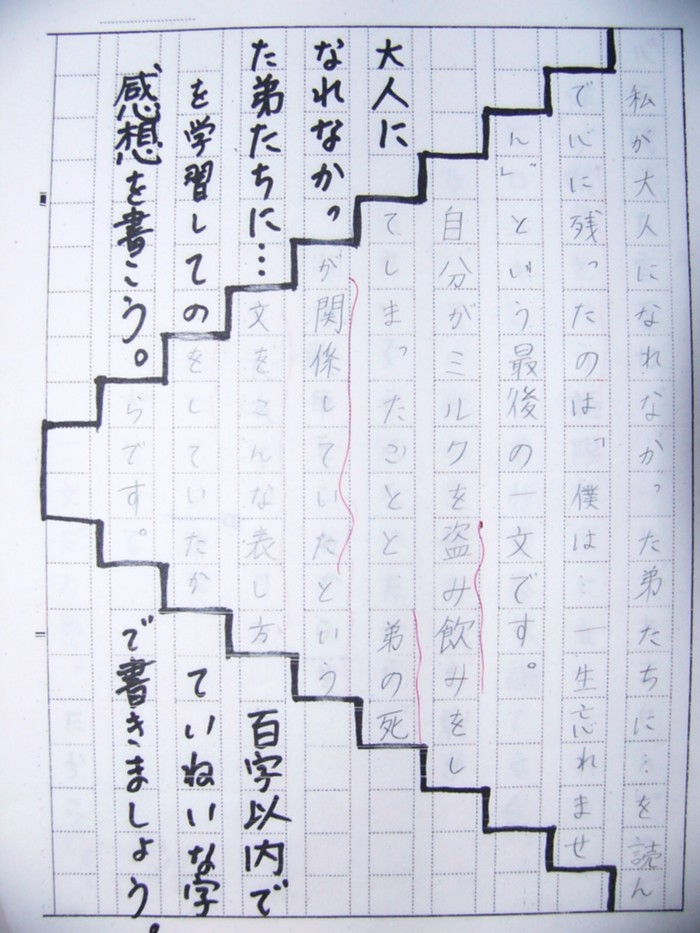 私が大人になれなかった弟たちに…を読ん
で心に残ったのは「僕は一生忘れませ
ん」という最後の一文です。
自分がミルクを盗み飲みをし
てしまったことと弟の死
が関係していたという
文をこんな表し方
をしていたか
らです。
大人に
なれなかっ
た弟たちに…
を学習しての
感想を書こう。
百字以内で
ていねいな字
で書きましょう。